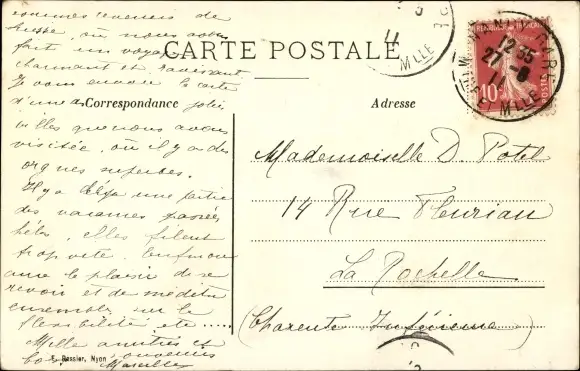 sommes revenues de
Suisse, où nous avons
fait un voyage
charmant et ravissant
Je vous envoie la carte
d'une des jolies
villes que nous avons
visitée, où il y a des
orgues superbes.
Il y a déjà une partie
des vacances passées
hélas, elles filent
trop vite.
avec le plaisir de se
revoir et de méditer
ensemble sur la
flexibilité etc.....
Mille amitiés et
bons souvenirs
Marcelle
CARTE POSTALE
Correspondance
Adresse
Mademoiselle D. Potel
14 Rue Fleuriau
La Rochelle
(Charente Inférieure)
12 35
27 - 8
11
Sne Mlle
10c
POSTES
11
Mlle
Bassier, Nyon